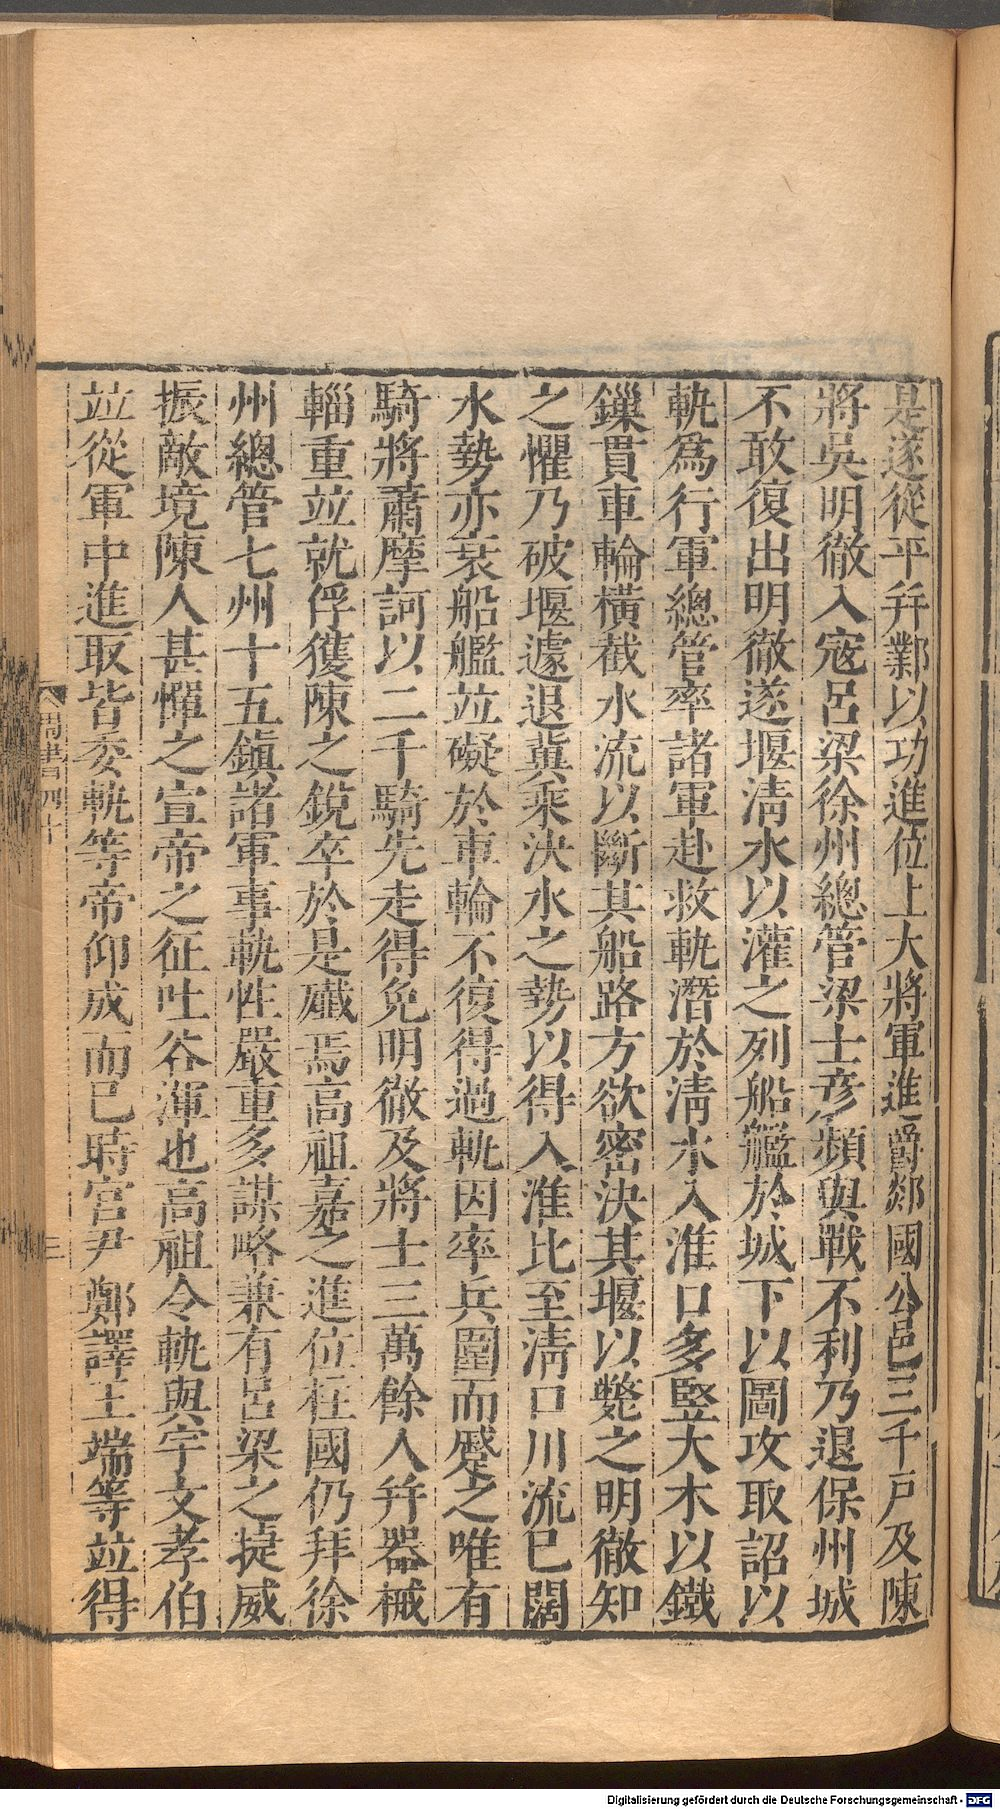 是遂從平幷鄴以功進位上大將軍進爵郯國公邑三千戶及陳
將吳明徹入寇呂梁徐州總管梁士彥頻與戰不利乃退保州城
不敢復出明徹遂堰淸水以灌之列船艦於城下以圖攻取詔以
軌爲行軍總管率諸軍赴救軌潛於淸水入淮口多竪大木以鐵
鏁貫車輪橫截水流以斷其船路方欲密決其堰以斃之明徹知
之懼乃破堰遽退冀乘決水之勢以得入淮比至淸口川流已闊
水勢亦衰船艦竝礙於車輪不復得過軌因率兵圍而蹙之唯有
騎將蕭摩訶以二千騎先走得免明徹及將士三萬餘人幷器械
輜重竝就俘獲陳之銳卒於是殲焉高祖嘉之進位柱國仍拜徐
州總管七州十五鎭諸軍事軌性嚴重多謀略兼有呂梁之捷威
振敵境陳人甚憚之宣帝之征吐谷渾也高祖令軌與宇文孝伯
竝從軍中進取皆委軌等帝仰成而已時宮尹鄭譯王端等竝得
周書四十
三
Digitalisierung gefördert durch die Deutsche Forschungsgemeinschaft - DFG